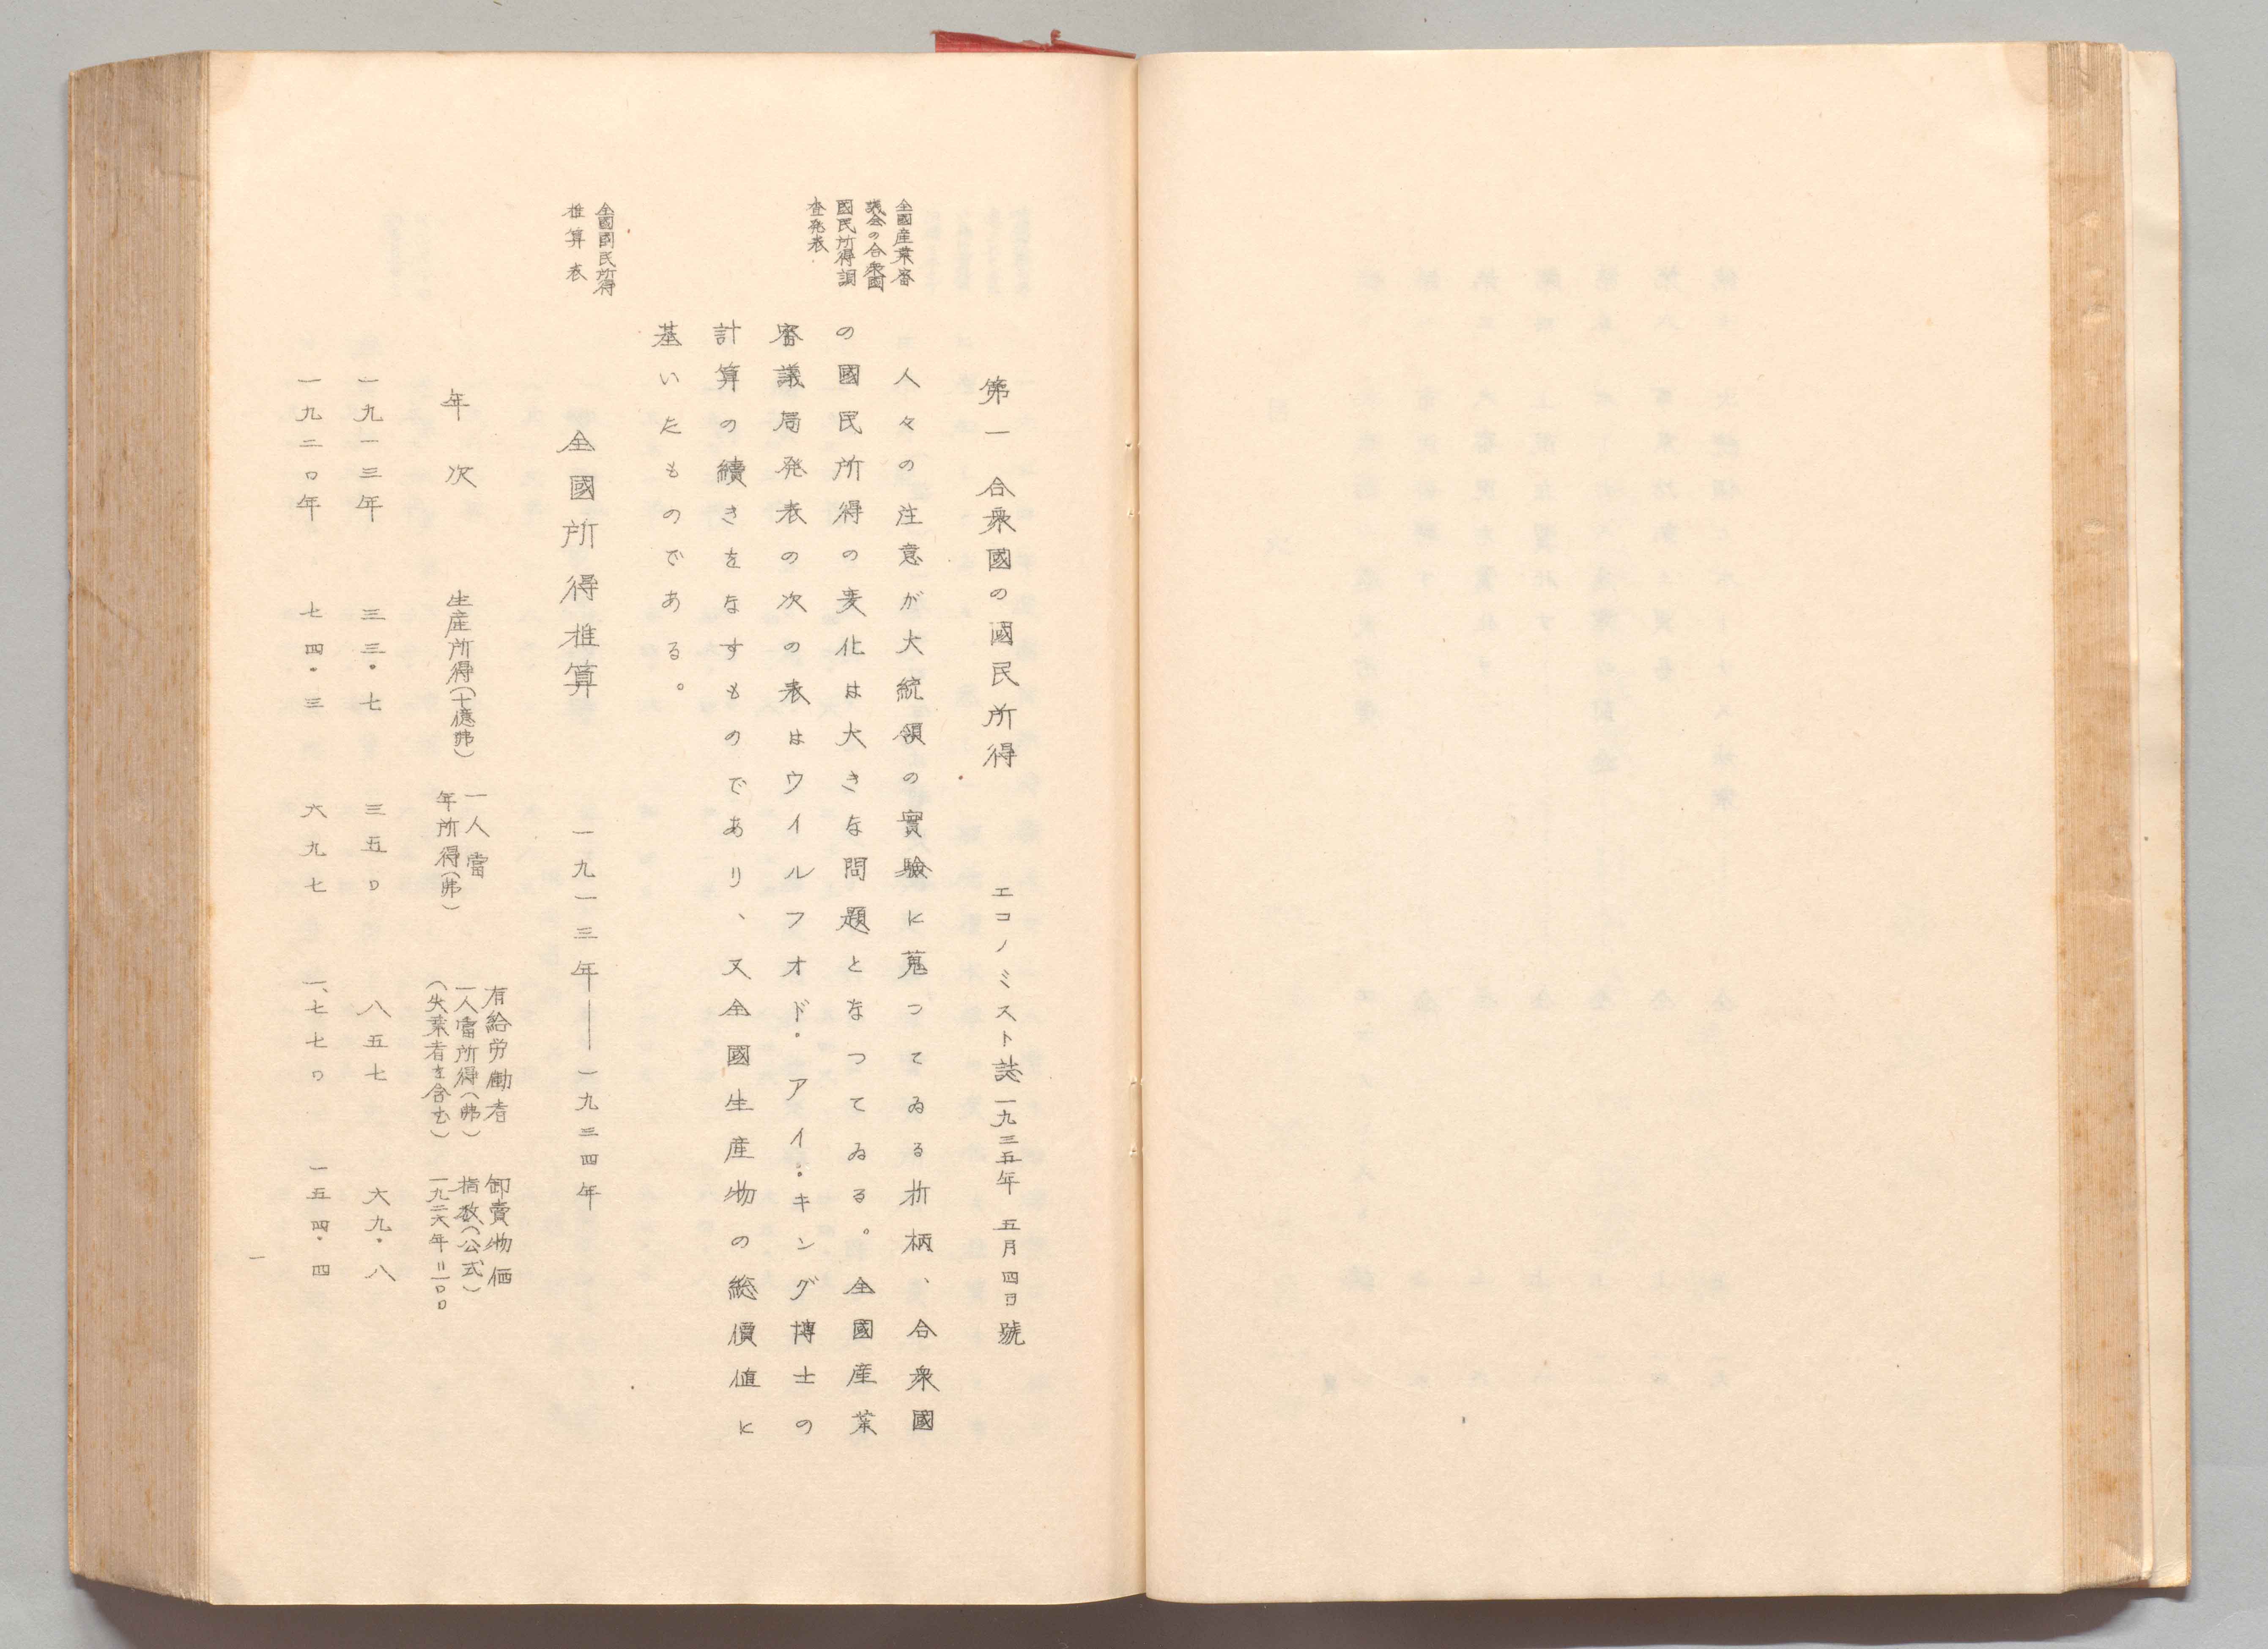 第一　合衆國の國民所得　エコノミスト誌一九三五年　五月四日號
全國産業審
議会の合衆國
國民所得調
査発表.
人々の注意が大統領の實驗に蒐つてゐる折柄、合衆國
の國民所得の変化は大きな問題となつてゐる。全國産業
審議局発表の次の表はウイルフオド.アイ.キング博士の
計算の續きをなすものであり、又全國生産物の総價値に
基いたものである。
全國國民所得
推算表
全國所得推算　一九一三年——一九三四年
年次　生産所得(十億弗)　一人當年所得(弗)　有給労働者一人當所得(弗)(失業者を含む)　卸賣物価指数(公式)一九二六年=一〇〇
一九一三年　三三・七　三五〇　八五七　六九・八
一九二〇年　七四・三　六九七　一、七七〇　一五四・四
一